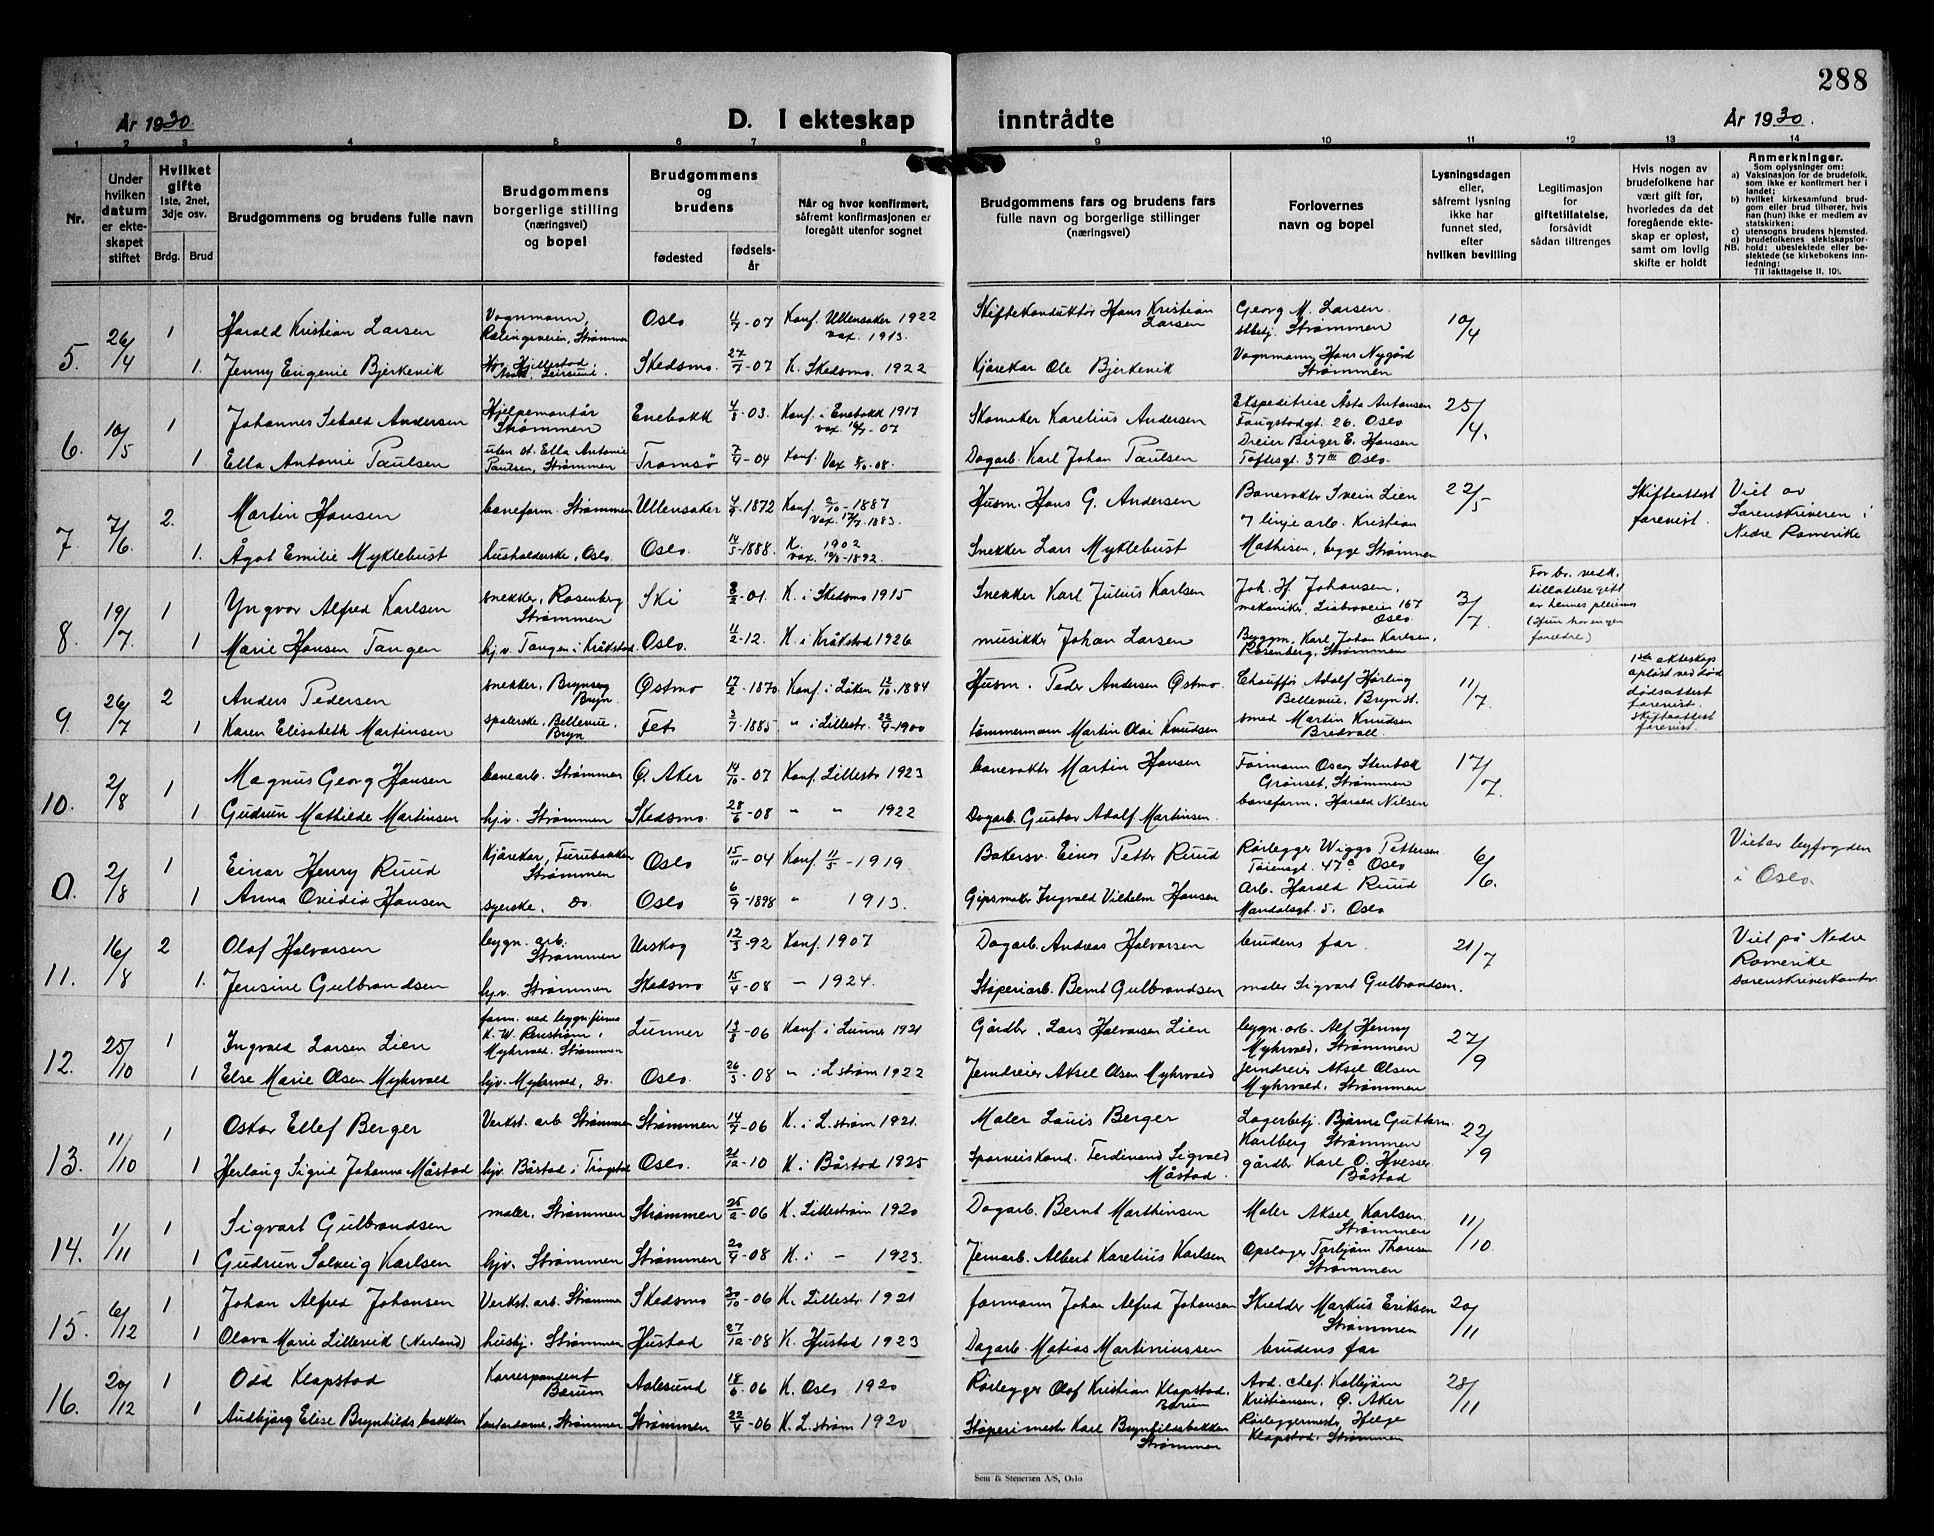 288
År 1930.
D. I ekteskap inntrådte
År 1930.
1 2 3 4 5 6 7 8 9 10 11 12 13 14
Nr.
Under hvilken datum er ekteskapet stiftet
Hvilket gifte 1ste, 2net, 3dje osv.
Brdg. Brud
Brudgommens og brudens fulle navn
Brudgommens borgerlige stilling (næringsvei) og bopel
Brudgommens og brudens
fødested
fødselsår
Når og hvor konfirmert, såfremt konfirmasjonen er foregått utenfor sognet
Brudgommens fars og brudens fars fulle navn og borgerlige stillinger (næringsvei)
Forlovernes navn og bopel
Lysningsdagen eller, såfremt lysning ikke har funnet sted, efter hvilken bevilling
Legitimasjon for giftetillatelse, forsåvidt sådan tiltrenges
Hvis nogen av brudefolkene har vært gift før, hvorledes da det foregående ekteskap er opløst, samt om lovlig skifte er holdt
Anmerkninger.
Som oplysninger om:
a) Vaksinasjon for de brudefolk, som ikke er konfirmert her i landet;
b) hvilket kirkesamfund brudgom eller brud tilhører, hvis han (hun) ikke er medlem av statskirken;
c) utensogns brudens hjemsted.
d) brudefolkenes slektskapsforhold: ubeslektede eller beslektede (se kirkebokens innledning:
NB.
Til iakttagelse II. 10).
5. 26/4 1 Harald Kristian Larsen Vognmann, Strømmen Oslo 11/7-07 Konf. Ullensaker 1922 vax. 1913. Skiftekonduktør Hans Kristian Larsen Georg M. Larsen Strømmen 10/4
1. Jenny Eugenie Bjerkevik Skedsmo 27/7-07 K. Skedsmo 1922 Kjørekar Ole Bjerkevik Vognmann Hans Nygård Strømmen
6. 10/5 1 Johannes Sebald Andersen Hjelpemontør Strømmen Enebakk 4/8-03. Konf. i Enebakk 1917 Skomaker Karelius Andersen Ekspeditrise Asta Antonsen 26. Oslo 25/4.
1 Ella Antonie Paulsen uten st. Ella Antonie Paulsen, Strømmen Tromsø 7/4-04 Konf. Vax Dagarb. Karl Johan Paulsen Dreier Birger E. Hansen Toftesgt. 37III Oslo.
7. 7/6 2. Martin Hansen baneform. Strømmen Ullensaker 4/9-1872 Konf. 2/10-1887 Husm. Hans G. Andersen Banevokter Svein Lien 22/5 Skifteattest forevist. Viet av Sorenskriveren i Nedre Romerike
1. Ågot Emilie Myklebust husholderske, Oslo. Oslo. 14/5-1888. K. 1902 Snekker Lars Myklebust linje arb. Kristian Mathisen, begge Strømmen
8. 19/7. 1 Yngvar Alfred Karlsen snekker, Rosenberg Strømmen Ski 8/2-01. K. i Skedsmo 1915 Snekker Karl Julius Karlsen Joh. H. Johansen, mekaniker, 167 Oslo. 3/7. For br. vedk. tillatelse gitt av hennes pleiemor (Hun har ingen foreldre)
1 Marie Hansen Tangen hj.v. Tangen i Kråkstad. Oslo. 11/2-12. K. i Kråkstad 1926 musikker Johan Larsen Karl Johan Karlsen, Rosenberg, Strømmen
9. 26/7 2 Anders Pedersen snekker, Brynseng Bryn. Østmo 17/2-1870 Konf. i Løken 12/10-1884 Husm. Peder Andersen Østmo. Chauffør Adolf Hørling Bellevue, Bryn st. 11/7. 1ste ekteskap opløst ved død dødsattest forevist. skifteattest forevist.
1 Karen Elisabeth Martinsen spolerske, Bellevue, Bryn Fet 3/7-1885 " i Lillestr. 22/4-1900 tømmermann Martin Olai Knudsen smed Martin Knudsen Bredvoll.
10. 2/8 1 Magnus Georg Hansen banearb. Strømmen Ø. Aker 14/10-07 Konf. Lillestr 1923 banevokter Martin Hansen Formann Oscar Stenbak Grønset, Strømmen 17/7.
1 Gudrun Mathilde Martinsen hj.v. Strømmen Skedsmo. 28/6-08 " " 1922 Dagarb. Gustav Adolf Martinsen. baneform. Harald Nilsen
0. 2/8 1 Einar Henry Ruud Kjørekar, Furubakken Strømmen Oslo 15/11-04 Konf. 11/5-1919 Bakersv. Einar Petter Ruud Rørlegger Wiggo Pettersen Tøiengt. 47c Oslo 6/6. Viet av byfogden i Oslo.
1 Anna Ovidia Hansen syerske. Do. Oslo 6/9-1898 " 1913. Gipsmaker Ingvald Vilhelm Hansen arb. Harald Ruud Mandalsgt. 5. Oslo
11. 16/8 2 Olaf Halvorsen bygn. arb. Strømmen Urskog 12/3-92 Konf. 1907 Dagarb. Andreas Halvorsen brudens far. 21/7 Viet på Nedre Romerike sorenskriverkontor
1. Jensine Gulbrandsen hj.v. Strømmen Skedsmo 15/4-08 " 1924. Støperiarb. Bernt Gulbrandsen maler Sigvart Gulbrandsen.
12. 25/10 1 Ingvald Larsen Lien form. ved bygn.firma Myhrvold. Strømmen Lunner 13/8-06 Konf. i Lunner 1921 Gårdbr. Lars Halvorsen Lien bygn. arb. Alf Henny Myhrvold, Strømmen 27/9
1 Else Marie Olsen Myhrvold hjv. Myhrvold, Do. Oslo. 26/3-08 " i L.strøm 1922 Jerndreier Aksel Olsen Myhrvold Jerndreier Aksel Olsen Myhrvold, Strømmen
13. 11/10 1 Oskar Ellef Berger Verkst. arb Strømmen Strømmen 14/7-06 K. i L.strøm 1921. Maler Louis Berger Lagerbetj. Bjarne Guttorm Karlberg Strømmen 22/9
1 Herlaug Sigrid Johanne Måstad hjv. Båstad i Trøgstad Oslo. 21/12-10 K. i Båstad 1925 Sporveiskond. Ferdinand Sigvald Måstad. gårdbr Karl O. Båstad
14. 1/11 1 Sigvart Gulbrandsen maler. Strømmen Strømmen 25/2-06 K. Lillestrøm 1920 Dagarb. Bernt Marthinsen Maler Aksel Karlsen. Strømmen 11/10.
1 Gudrun Solveig Karlsen hjv. Strømmen Strømmen 20/4-08 K. i - 1923. Jernarb. Albert Karelius Karlsen Opslager Torbjørn Thorsen Strømmen
15. 6/12 1 Johan Alfred Johansen Verkst. arb. Strømmen Skedsmo 30/10-06 K. Lillestr. 1921 formann Johan Alfred Johansen Skredder Markus Eriksen Strømmen 20/11
1 Olava Marie Lillevik (Nerland) husbj. Strømmen Hustad 27/12-08 K. Hustad 1923 Dagarb. Matias Martiniussen brudens far
16. 20/12 1 Odd Klapstad Korrespondent Bærum Aalesund 18/6-06 K. Oslo 1920 Rørlegger Olaf Kristian Klapstad. Bærum Avd. chef. Kolbjørn Kristiansen, Ø. Aker 28/11
1 Audbjørg Elise Brynhildsbakken Kontordame, Strømmen Strømmen 22/4-06 K. L.strøm 1920 Støperimester Karl Brynhildsbakken Strømmen Rørleggermester Helge Klapstad. Strømmen
Sem & Stenersen A/S, Oslo